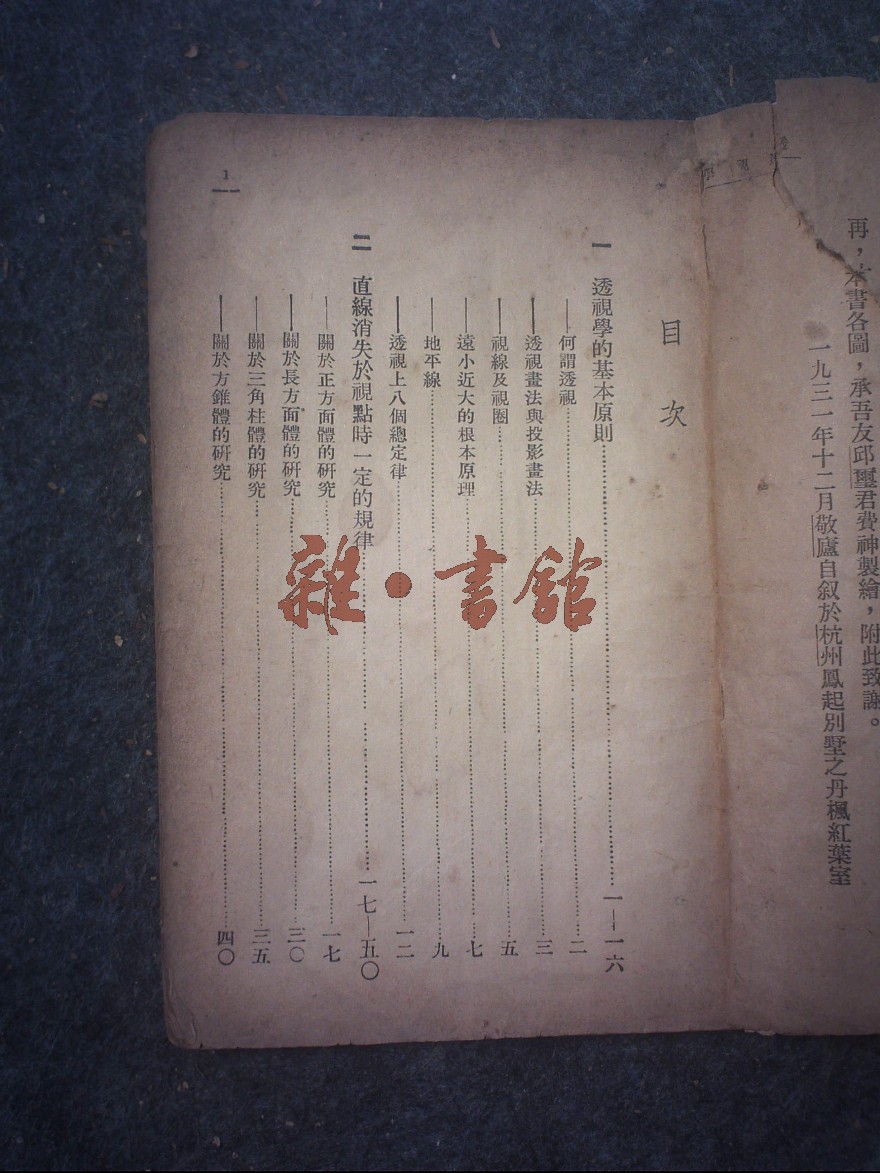 再，本書各圖，承吾友邱璽君費神製繪，附此致謝。
一九三一年十二月敬廬自叙於杭州鳳起別墅之丹楓紅葉室
目次
一 透視學的基本原則……一—一六
——何謂透視……二
——透視畫法與投影畫法……三
——視線及視圈……五
——遠小近大的根本原理……七
——地平線……九
——透視上八個總定律……一二
二 直線消失於視點時一定的規律……一七—五〇
——關於正方面體的研究……一七
——關於長方面體的研究……三〇
——關於三角柱體的研究……三五
——關於方錐體的研究……四〇
1
雜·書館